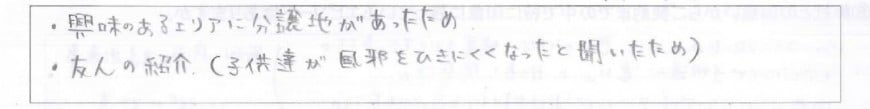 ・興味のあるエリアに分譲地があったため
・友人の紹介.(子供達が風邪をひきにくくなったと聞いたため)